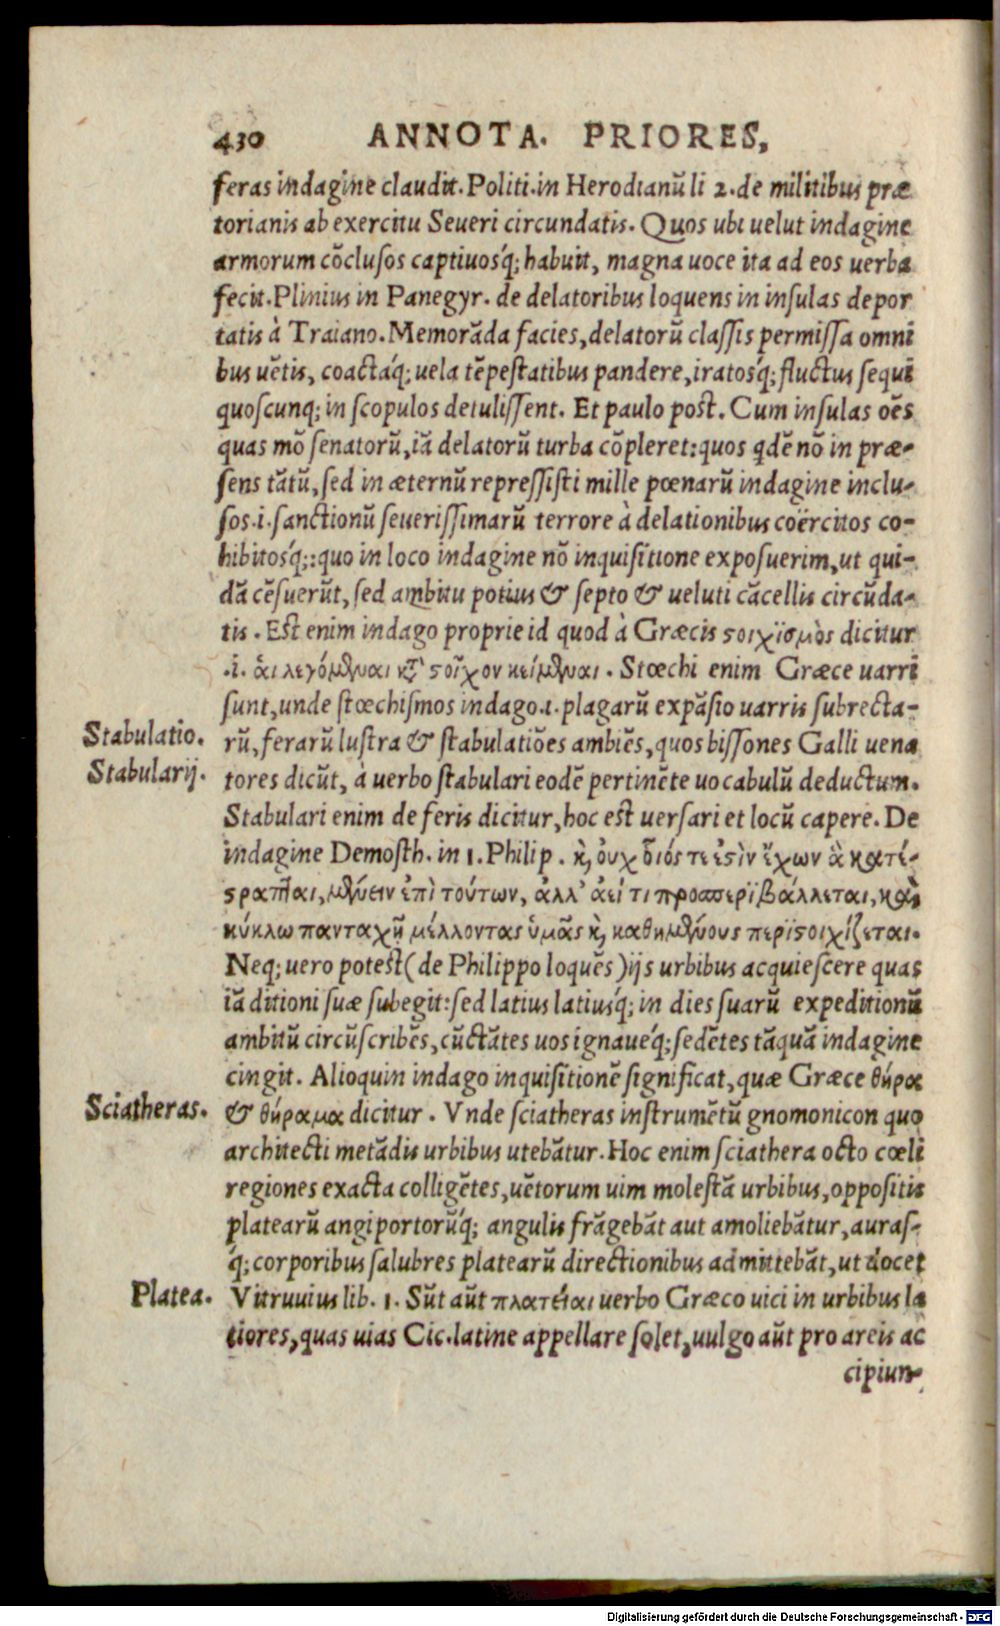 430 ANNOTA. PRIORES,
feras indagine claudit. Politi. in Herodianũ li 2. de militibus præ
torianis ab exercitu Seueri circundatis. Quos ubi uelut indagine
armorum cõclusos captiuosq́; habuit, magna uoce ita ad eos uerba
fecit. Plinius in Panegyr. de delatoribus loquens in insulas depor
tatis à Traiano. Memorãda facies, delatorũ classis permissa omni
bus uẽtis, coactaq́; uela tẽpestatibus pandere, iratosq́; fluctus sequi
quoscunq; in scopulos detulissent. Et paulo post. Cum insulas oẽs
quas mõ senatorũ, iã delatorũ turba cõpleret: quos qdẽ nõ in præ-
sens tãtũ, sed in æternũ repressisti mille pœnarũ indagine inclu-
sos .i. sanctionũ seuerissimarũ terrore à delationibus coërcitos co-
hibitosq́;: quo in loco indagine nõ inquisitione exposuerim, ut qui-
dã cẽsuerũt, sed ambitu potius & septo & ueluti cãcellis circũda-
tis. Est enim indago proprie id quod à Græcis ϛοιχϊσμὸς dicitur
.i. ἁι λεγόμϟυαι κτ̀ ϛοῖχον κείμϟυαι. Stœchi enim Græce uarri
sunt, unde stœchismos indago .i. plagarũ expãsio uarris subrecta-
Stabulatio. rũ, ferarũ lustra & stabulatiões ambiẽs, quos bissones Galli uena
Stabularij. tores dicũt, à uerbo stabulari eodẽ pertinẽte uocabulũ deductum.
Stabulari enim de feris dicitur, hoc est uersari et locũ capere. De
indagine Demosth. in 1. Philip. κ̀, ὀυχ ὃιός τε ἐϛὶν ἔχων ἃ κατέ-
ϛραπται, μϟύειν ἐπὶ τούτων, ἀλλ' ἀεί τι προσπερϊβάλλεται, καὶ
κύκλω πανταχῆ μέλλοντας ὑμᾶς κ̀, καθημϟύους περϊϛοιχίζεται.
Neq; uero potest (de Philippo loquẽs) ijs urbibus acquiescere quas
iã ditioni suæ subegit: sed latius latiusq́; in dies suarũ expeditionũ
ambitũ circũscribẽs, cũctãtes uos ignaueq́; sedẽtes tãquã indagine
cingit. Alioquin indago inquisitionẽ significat, quæ Græce θήρα
Sciatheras. & θήραμα dicitur. Vnde sciatheras instrumẽtũ gnomonicon quo
architecti metãdis urbibus utebãtur. Hoc enim sciathera octo cœli
regiones exacta colligẽtes, uẽtorum uim molestã urbibus, oppositis
platearũ angiportorũq́; angulis frãgebãt aut amoliebãtur, auras-
q́; corporibus salubres platearũ directionibus admittebãt, ut docet
Platea. Vitruuius lib. 1. Sũt aũt πλατεῖαι uerbo Græco uici in urbibus la
tiores, quas uias Cic. latine appellare solet, uulgo aũt pro areis ac
cipiun-
Digitalisierung gefördert durch die Deutsche Forschungsgemeinschaft - DFG